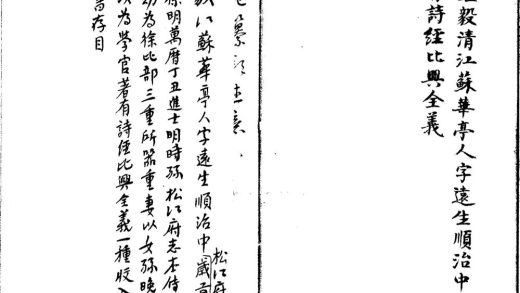 毅清江蘇華亭人字遠生順治中
詩經比興全義
江蘇華亭人字遠生順治中歲貢
松江府
明萬曆丁丑進士明時 松江府志本傳
幼為徐比部三重所器重妻以女 晚
以為學官著有詩經比興全義一種收入
存目